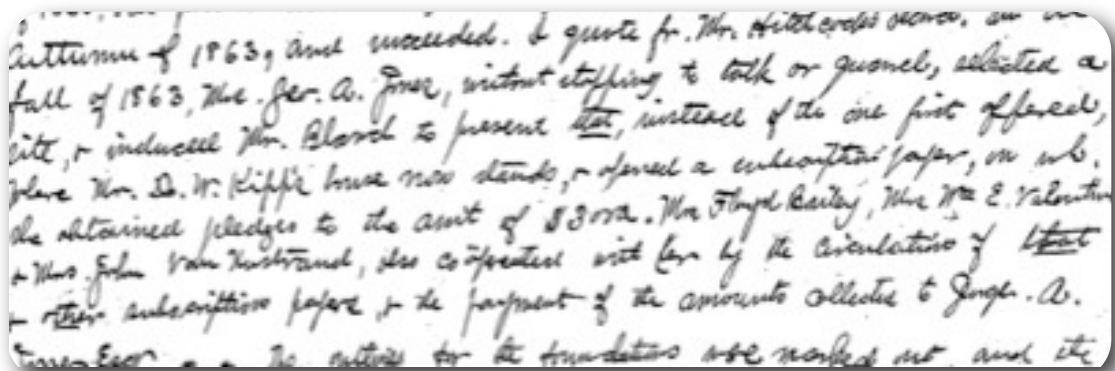 Autumn of 1863, and succeeded. I quote fr. Mr. Hitchcocks
fall of 1863, Mrs. Jer. A. Jones, without stopping to talk or quarrel, selected a
site, & induced Mr. to present that, instead of the one first offered,
where Mr. D. W. Kipp's house now stands, & opened a subscription paper, on wh.
she obtained pledges to the amt of $3000. Mrs Floyd Bailey, Mrs Wm E. Valentine
& Mrs. John Van Nostrand, also coöperated with her by the circulation of that
& other subscription papers, & the payment of the amounts collected to A.
The outlines for the foundations were marked out, and the